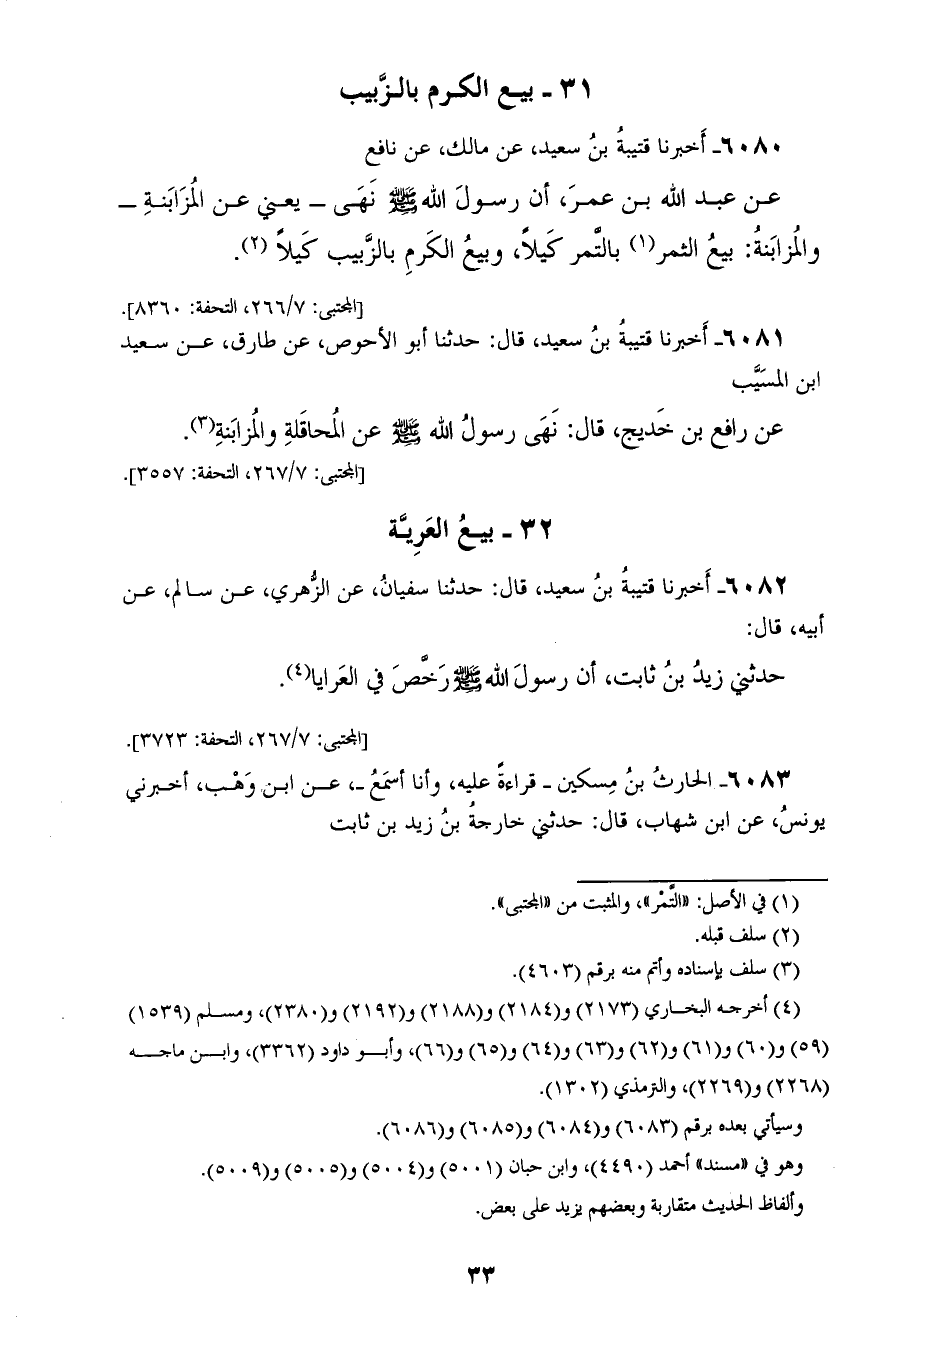 ٣١ - بيع الكرم بالزَّبيب
٦٠٨٠ـ أَخبرنا قتيبةُ بنُ سعيد، عن مالك، عن نافع
عن عبد الله بن عمرَ، أن رسولَ الله ﷺ نَهَى – يعني عن المُزَابَنةِ –
والمُزابَنةُ: بيعُ الثمر(١) بالتَّمر كَيلاً، وبيعُ الكَرمِ بالزَّبيب كَيلاً (٢).
[المجتبى: ٢٦٦/٧، التحفة: ٨٣٦٠].
٦٠٨١ـ أَخبرنا قتيبةُ بنُ سعيد، قال: حدثنا أبو الأحوص، عن طارق، عن سعيد
ابن المسَيَّب
عن رافع بن خَديج، قال: نَهَى رسولُ الله ﷺ عن المُحاقَلةِ والمُزابَنةِ(٣).
[المجتبى: ٢٦٧/٧، التحفة: ٣٥٥٧].
٣٢ - بيعُ العَرِيَّة
٦٠٨٢ـ أَخبرنا قتيبةُ بنُ سعيد، قال: حدثنا سفيانُ، عن الزُّهري، عن سالم، عن
أبيه، قال:
حدثني زيدُ بنُ ثابت، أن رسولَ الله ﷺ رَخَّصَ في العَرايا(٤).
[المجتبى: ٢٦٧/٧، التحفة: ٣٧٢٣].
٦٠٨٣ـ الحارثُ بنُ مِسكين - قراءةً عليه، وأنا أسمَعُ -، عن ابن وَهْب، أخبرني
يونسُ، عن ابن شهاب، قال: حدثني خارجةُ بنُ زيد بن ثابت
(١) في الأصل: «التَّمْر»، والمثبت من «المجتبى».
(٢) سلف قبله.
(٣) سلف بإسناده وأتم منه برقم (٤٦٠٣).
(٤) أخرجه البخاري (٢١٧٣) و(٢١٨٤) و(٢١٨٨) و(٢١٩٢) و(٢٣٨٠)، ومسلم (١٥٣٩)
(٥٩) و(٦٠) و(٦١) و(٦٢) و(٦٣) و(٦٤) و(٦٥) و(٦٦)، وأبو داود (٣٣٦٢)، وابن ماجه
(٢٢٦٨) و(٢٢٦٩)، والترمذي (١٣٠٢).
وسيأتي بعده برقم (٦٠٨٣) و(٦٠٨٤) و(٦٠٨٥) و(٦٠٨٦).
وهو في «مسند» أحمد (٤٤٩٠)، وابن حبان (٥٠٠١) و(٥٠٠٤) و(٥٠٠٥) و(٥٠٠٩).
وألفاظ الحديث متقاربة وبعضهم يزيد على بعض.
٣٣